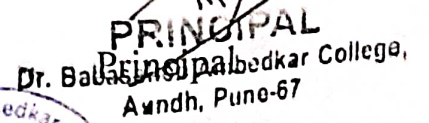 PRINCIPAL
Principal
Dr. Babasaheb Ambedkar College,
Aundh, Pune-67
edkar